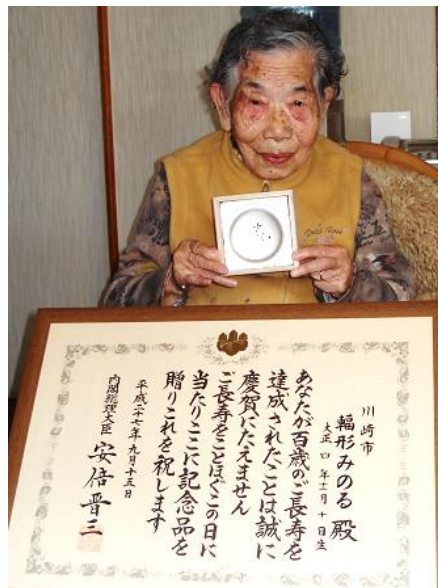 川崎市
輻形みのる 殿
大正四年十二月十日生
あなたが百歳のご長寿を
達成されたことは誠に
慶賀にたえません
ご長寿をことほぐこの日に
当たりここに記念品を
贈りこれを祝します
平成二十七年九月十五日
内閣総理大臣 安倍晋三